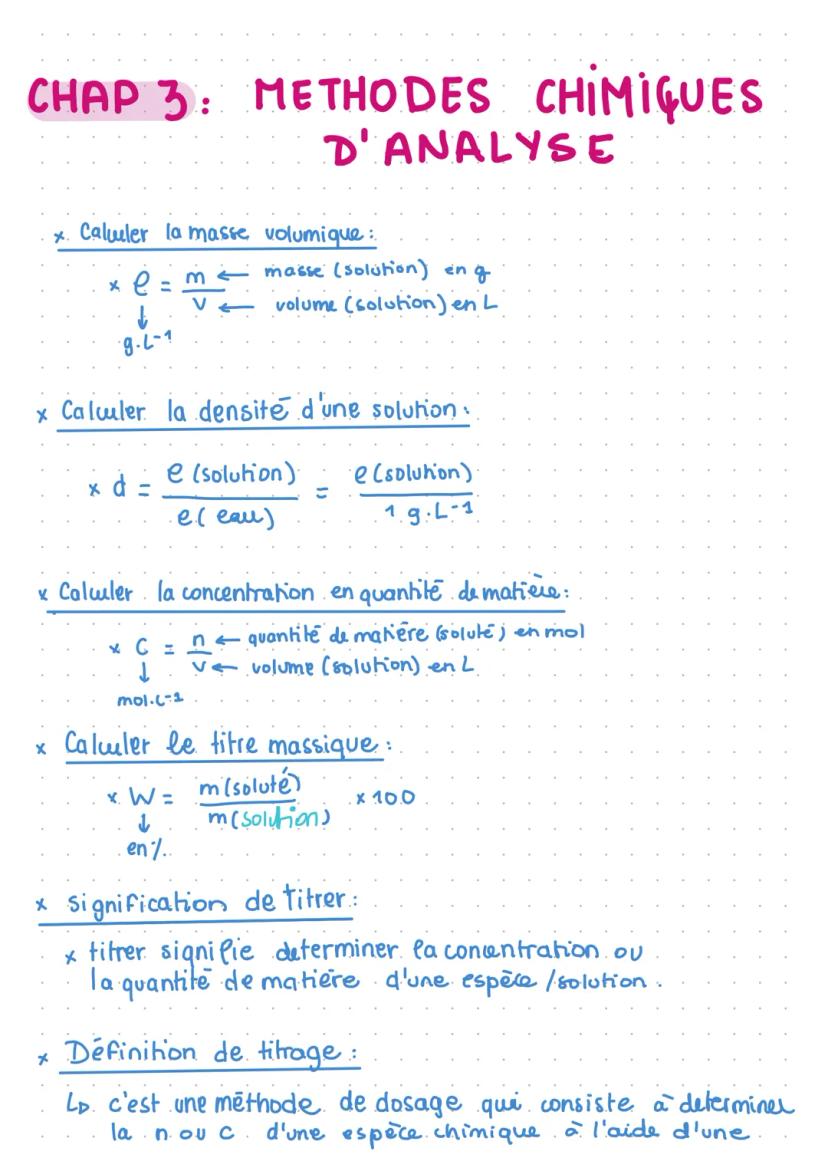 CHAP 3: METHODES CHIMIQUES
D'ANALYSE
x Calculer la masse volumique:
x ρ = m/V ← masse (solution) en g
← volume (solution) en L
↓
g.L-1
x Calculer la densité d'une solution:
x d = ρ (solution)/ρ (eau) = ρ (solution)/1 g.L-1
x Calculer la concentration en quantité de matière:
x C = n/V ← quantité de matière (soluté) en mol
← volume (solution) en L
↓
mol.L-1
x Calculer le titre massique:
x W = m(soluté)/m(solution) x 100
↓
en %.
x signification de titrer:
x titrer signifie determiner la concentration ou
la quantité de matière d'une espèce/solution.
x Définition de titrage:
↳ c'est une méthode de dosage qui consiste à determiner
la n ou c d'une espèce chimique à l'aide d'une